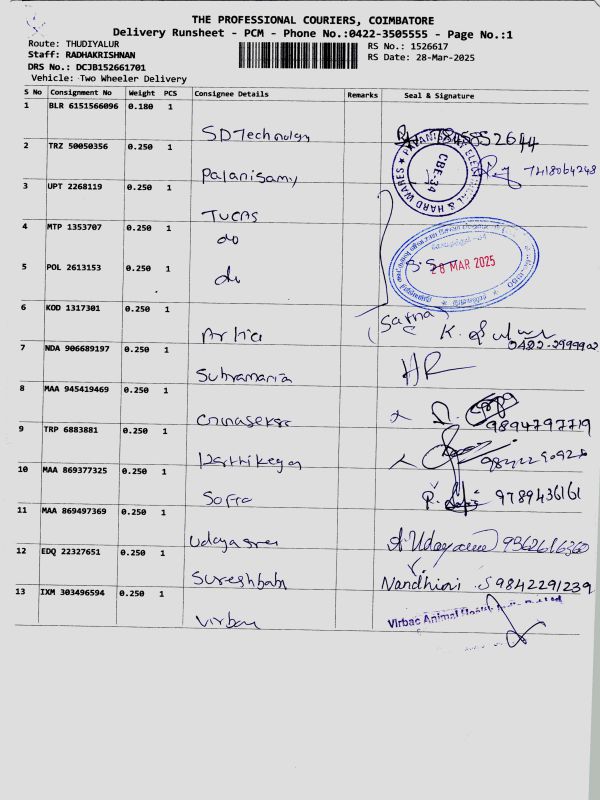 THE PROFESSIONAL COURIERS, COIMBATORE
Delivery Runsheet - PCM - Phone No.:0422-3505555 - Page No.:1
Route: THUDIYALUR
RS No.: 1526617
Staff: RADHAKRISHNAN
RS Date: 28-Mar-2025
DRS No.: DCJB152661701
Vehicle: Two Wheeler Delivery
S No Consignment No Weight PCS Consignee Details Remarks Seal & Signature
1 BLR 6151566096 0.180 1
SDTechnology 7845552644
2 TRZ 50050356 0.250 1
Palanisamy 7418064248
ELECTRICAL & HARD WARES
CBE-34
3 UPT 2268119 0.250 1
TUCAS
4 MTP 1353707 0.250 1
do
28 MAR 2025
5 POL 2613153 0.250 1
do
6 KOD 1317301 0.250 1
(Sarna)
0422-2999902
7 NDA 906689197 0.250 1
Subramania HR
8 MAA 945419469 0.250 1
9894797719
9 TRP 6883881 0.250 1
Karthikeyan
10 MAA 869377325 0.250 1
Sofra 9789436161
11 MAA 869497369 0.250 1
Udayasree 9362616360
12 EDQ 22327651 0.250 1
Sureshbabu Nandhini .S 9842291239
13 IXM 303496594 0.250 1
Virbac Virbac Animal Health